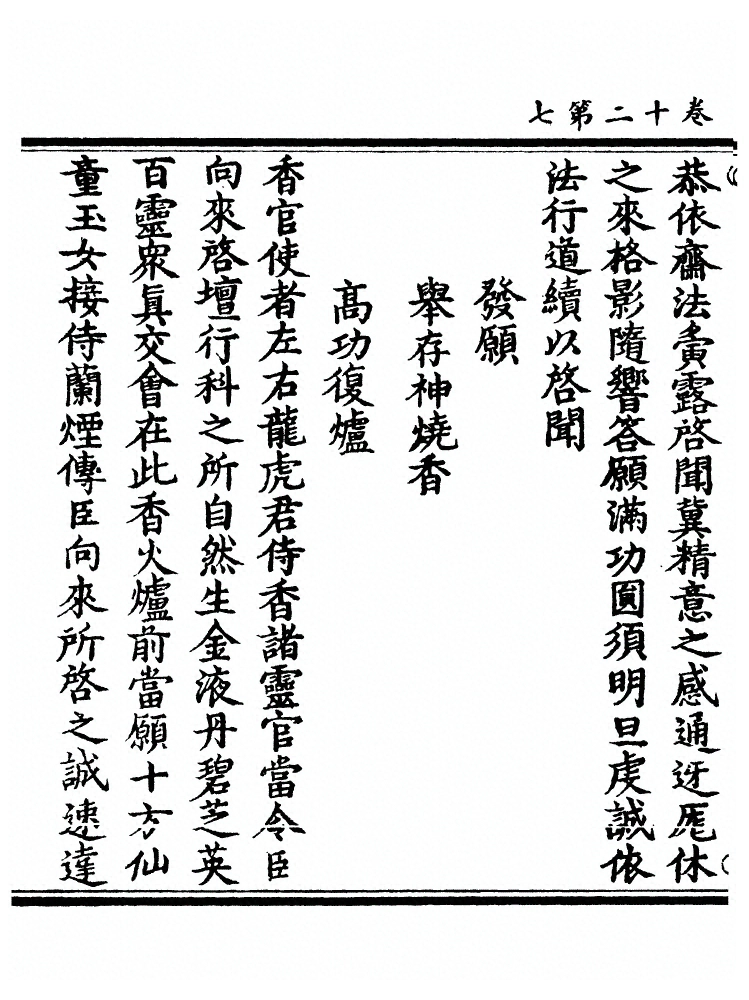 卷十二第七
恭依齋法露啓聞冀精意之感通迓厖休
之來格影隨響答願滿功圓須明旦虔誠依
法行道續以啓聞
發願
舉存神燒香
高功復爐
香官使者左右龍虎君侍香諸靈官當令臣
向來啓壇行科之所自然生金液丹碧芝英
百靈衆眞交會在此香火爐前當願十方仙
童玉女接侍蘭煙傳臣向來所啓之誠速達